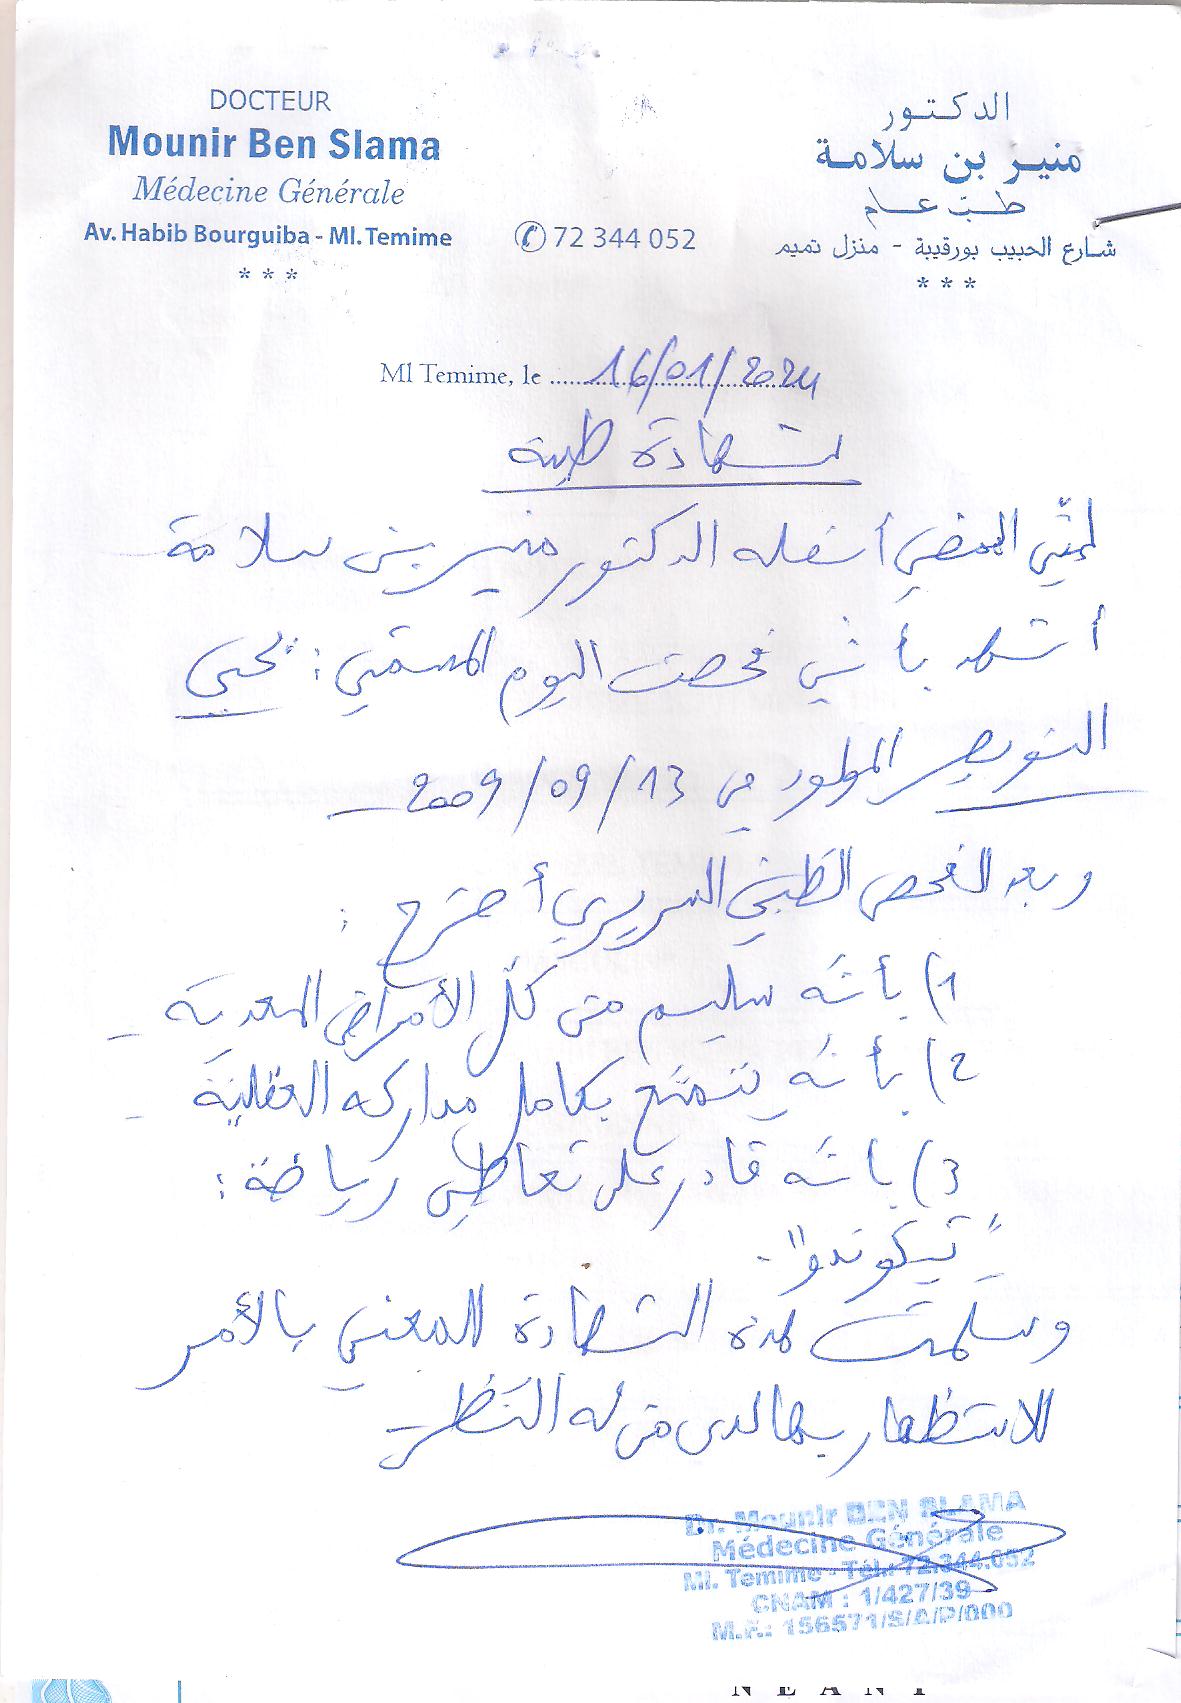 DOCTEUR
Mounir Ben Slama
Médecine Générale
Av. Habib Bourguiba - Ml. Temime
* * *
✆ 72 344 052
الدكتور
منير بن سلامة
طب عام
شارع الحبيب بورقيبة - منزل تميم
* * *
Ml Temime, le 16/01/2024
شهادة طبية
إنّي الممضي أسفله الدكتور منير بن سلامة
أشهد بأنّي فحصت اليوم المسمّى : يحيى
المولود في 13/09/2009
وبعد الفحص الطبّي السريري أصرّح :
1) بأنّه سليم من كلّ الأمراض المعدية -
2) بأنّه يتمتّع بكامل مداركه العقليّة -
3) بأنّه قادر على تعاطي رياضة :
"تيكوندو" .
وسلّمت هذه الشهادة للمعني بالأمر
للاستظهار بها لدى من له النّظر
Dr. Mounir BEN SLAMA
Médecine Générale
Ml. Temime - Tél.: 72.344.052
CNAM : 1/427/39
M.F.: 156571/S/A/P/000
NEANT